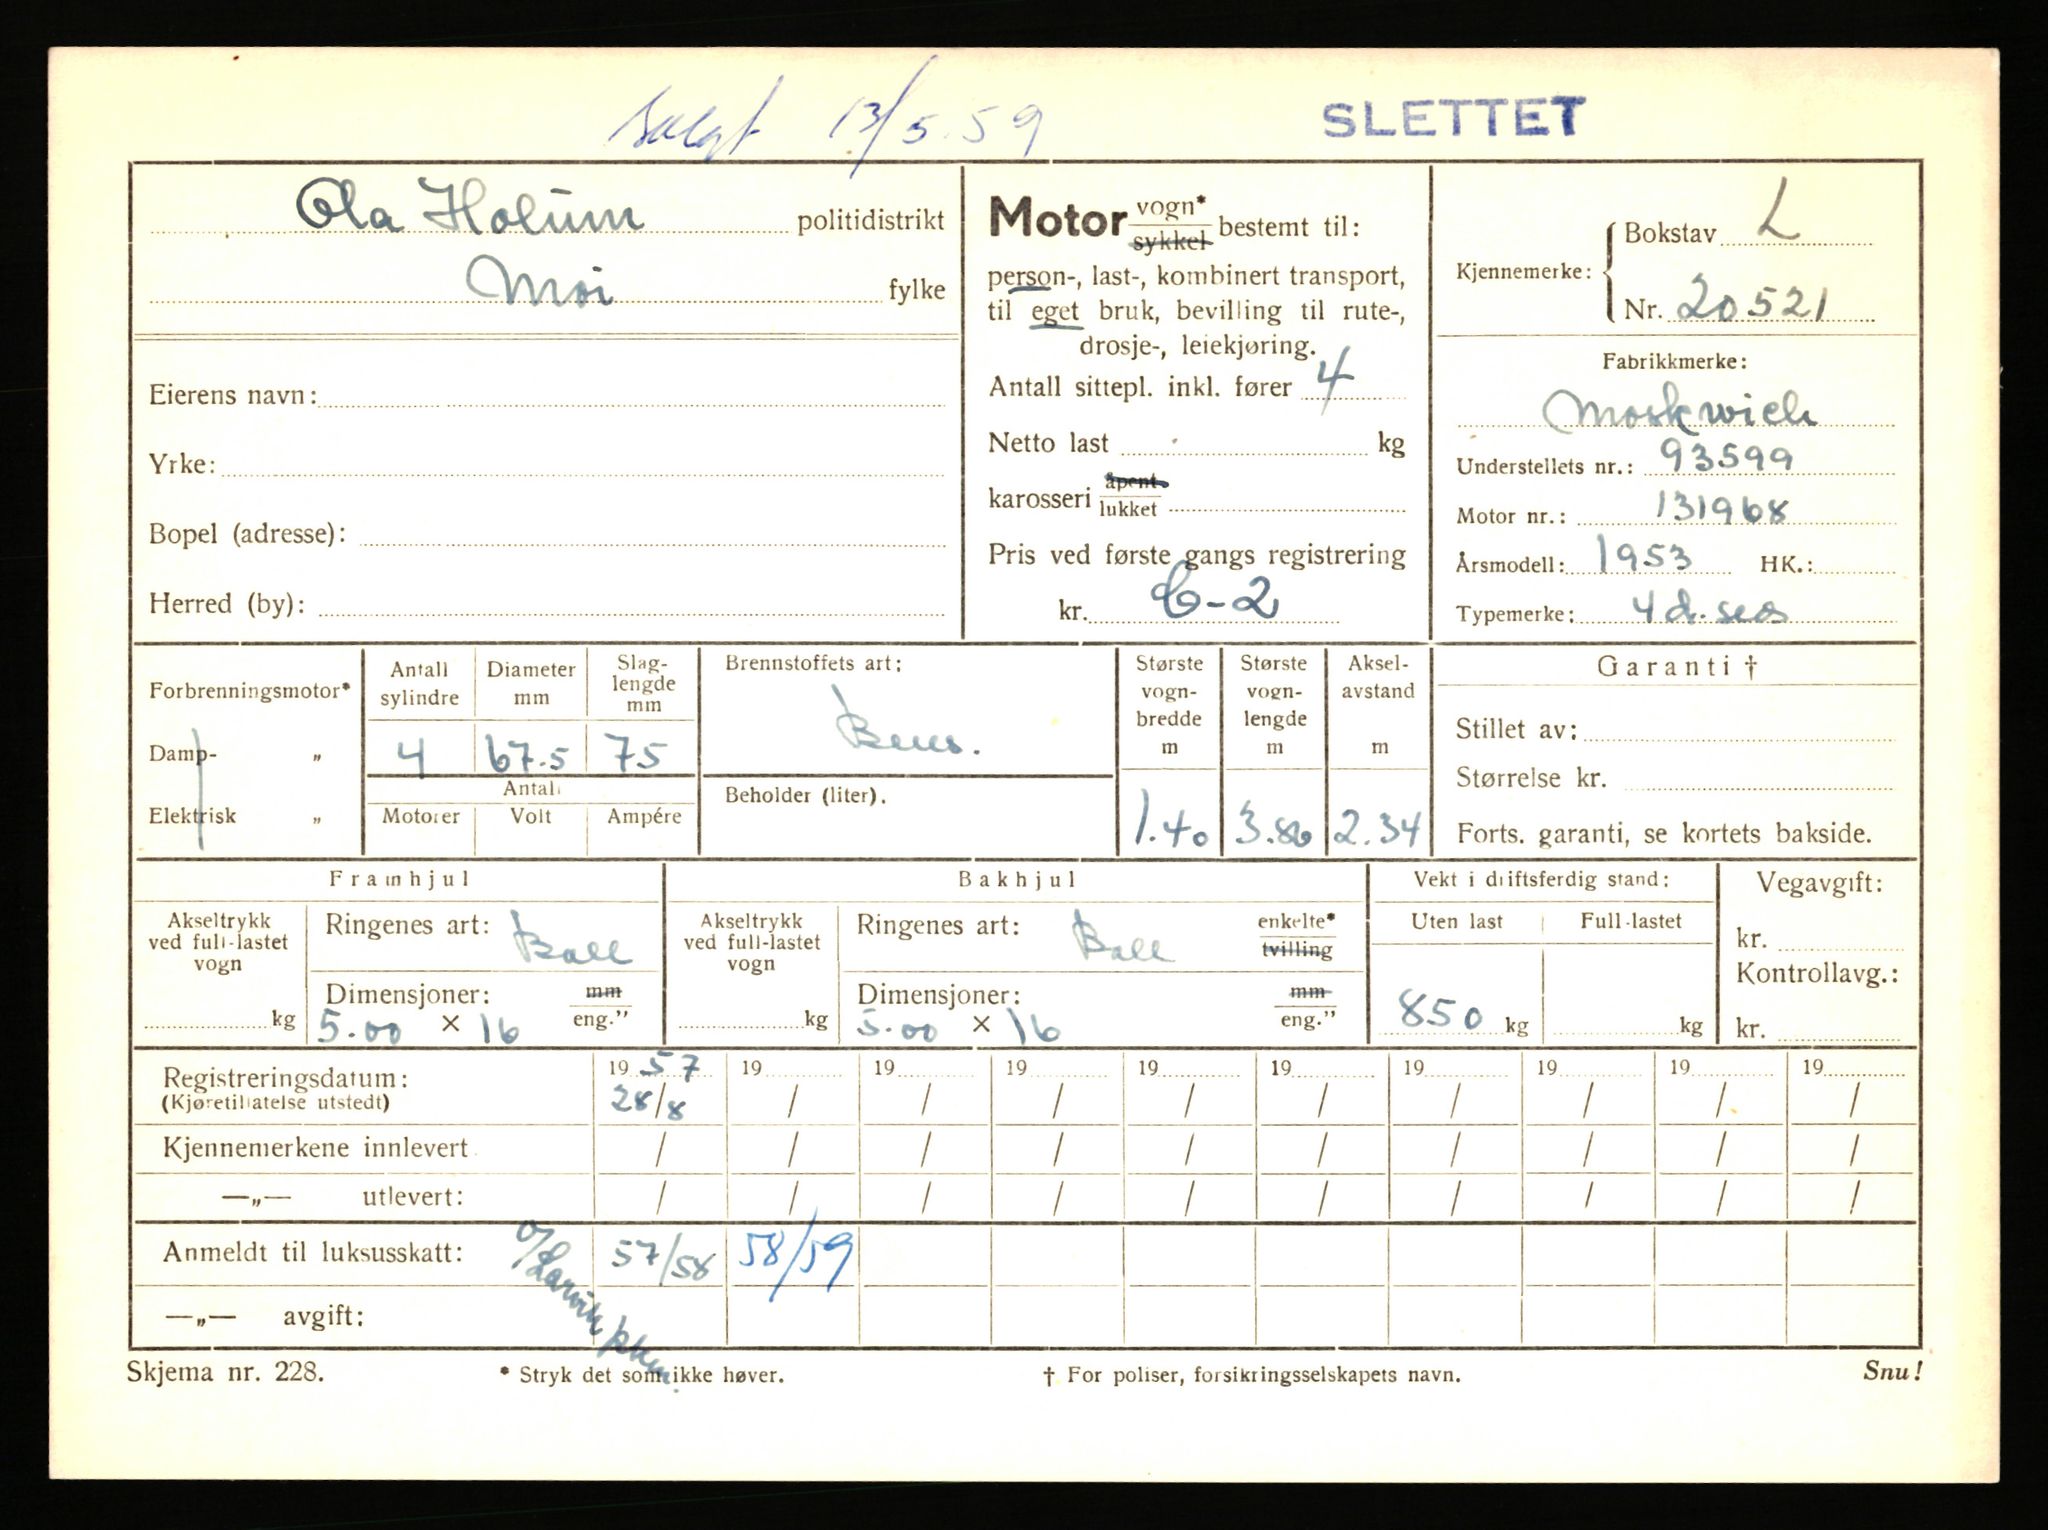 Solgt 13/5.59
SLETTET
Ola Holum politidistrikt
Moi fylke
Eierens navn:
Yrke:
Bopel (adresse):
Herred (by):
Motor vogn* sykkel bestemt til:
person-, last-, kombinert transport,
til eget bruk, bevilling til rute-,
drosje-, leiekjøring.
Antall sittepl. inkl. fører 4
Netto last kg
karosseri åpent lukket
Pris ved første gangs registrering
kr. C-2
Kjennemerke: Bokstav L
Nr. 20521
Fabrikkmerke:
Moskwich
Understellets nr.: 93599
Motor nr.: 131968
Årsmodell: 1953 HK.:
Typemerke: 4 d. sed
Forbrenningsmotor*
Damp- „
Elektrisk „
Antall sylindre
Diameter mm
Slag-
lengde
mm
4 67.5 75
Antall
Motorer Volt Ampére
Brennstoffets art:
Bens.
Beholder (liter).
Største
vogn-
bredde
m
1.40
Største
vogn-
lengde
m
3.86
Aksel-
avstand
m
2.34
Garanti †
Stillet av:
Størrelse kr.
Forts. garanti, se kortets bakside.
Framhjul
Akseltrykk
ved full-lastet
vogn
kg
Ringenes art: Ball
Dimensjoner: mm
5.00 × 16 eng."
Bakhjul
Akseltrykk
ved full-lastet
vogn
kg
Ringenes art: Ball enkelte* tvilling
Dimensjoner: mm
5.00 × 16 eng."
Vekt i driftsferdig stand:
Uten last Full-lastet
850 kg kg
Vegavgift:
kr.
Kontrollavg.:
kr.
Registreringsdatum: 19 57 19 19 19 19 19 19 19 19 19
(Kjøretillatelse utstedt) 28/8 / / / / / / / / /
Kjennemerkene innlevert / / / / / / / / / /
—„— utlevert: / / / / / / / / / /
Anmeldt til luksusskatt: 57/58 58/59
o/Larvik
—„— avgift:
Skjema nr. 228. * Stryk det som ikke høver. † For poliser, forsikringsselskapets navn. Snu!